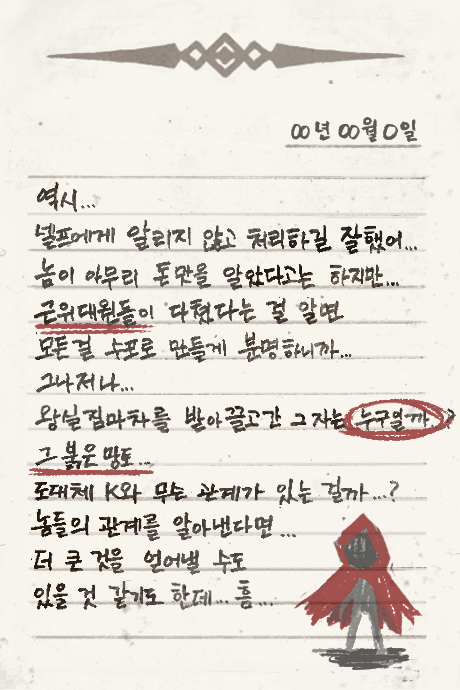 00년 00월 0일
역시...
넬프에게 알리지 않고 처리하길 잘했어...
놈이 아무리 돈맛을 알았다고는 하지만...
근위대원들이 다쳤다는 걸 알면
모든걸 수포로 만들게 분명하니까...
그나저나...
왕실 짐마차를 받아 끌고간 그 자는 누구일까..?
그 붉은 망토...
도대체 K와 무슨 관계가 있는 걸까...?
놈들의 관계를 알아낸다면...
더 큰 것을 얻어낼 수도
있을 것 같기도 한데... 흠...